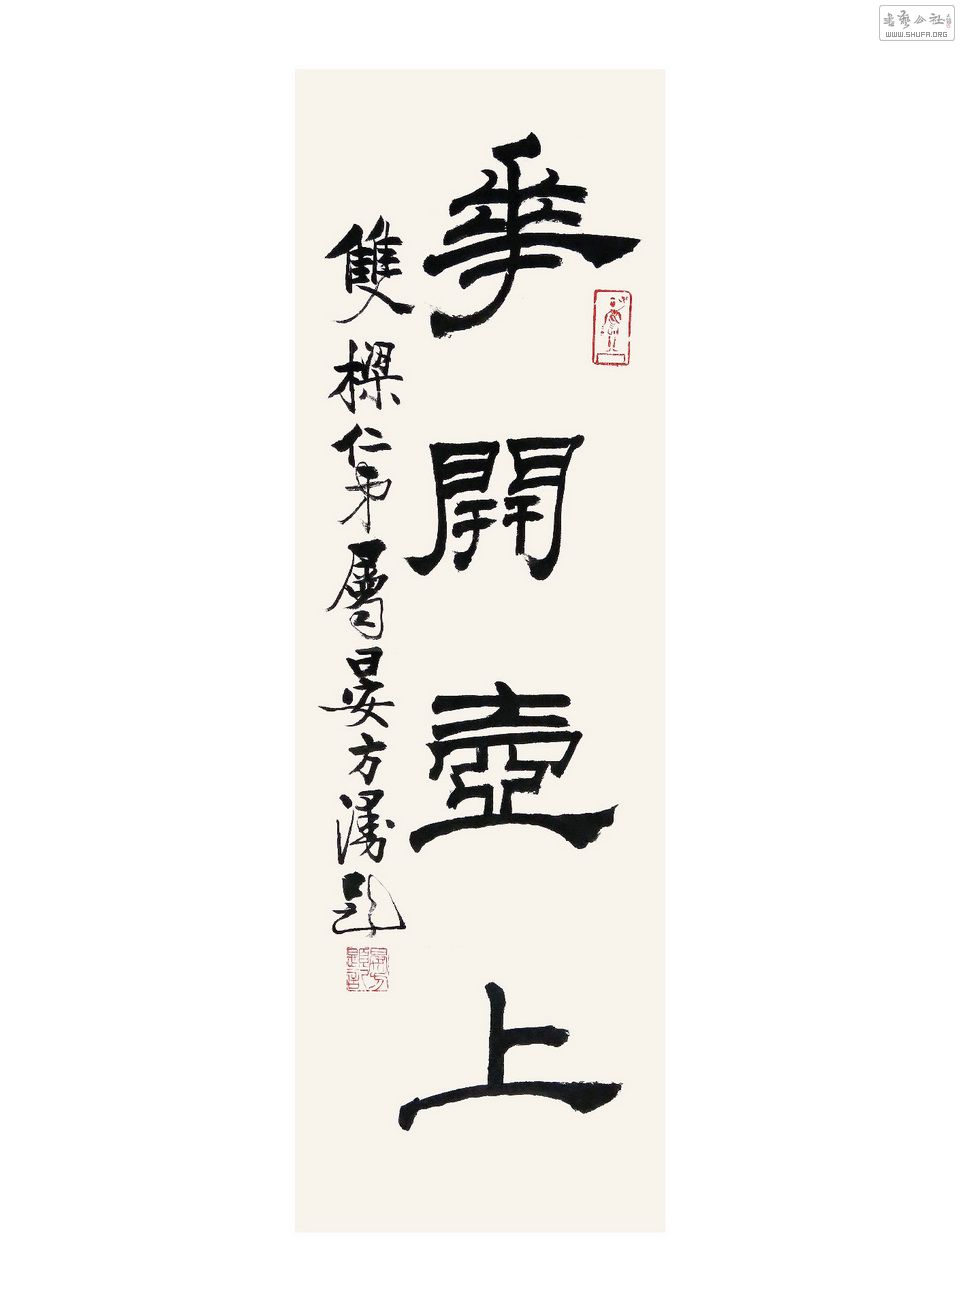 華開壺上
雙樑仁弟屬晏方漫題
書藝公社
WWW.SHUFA.ORG